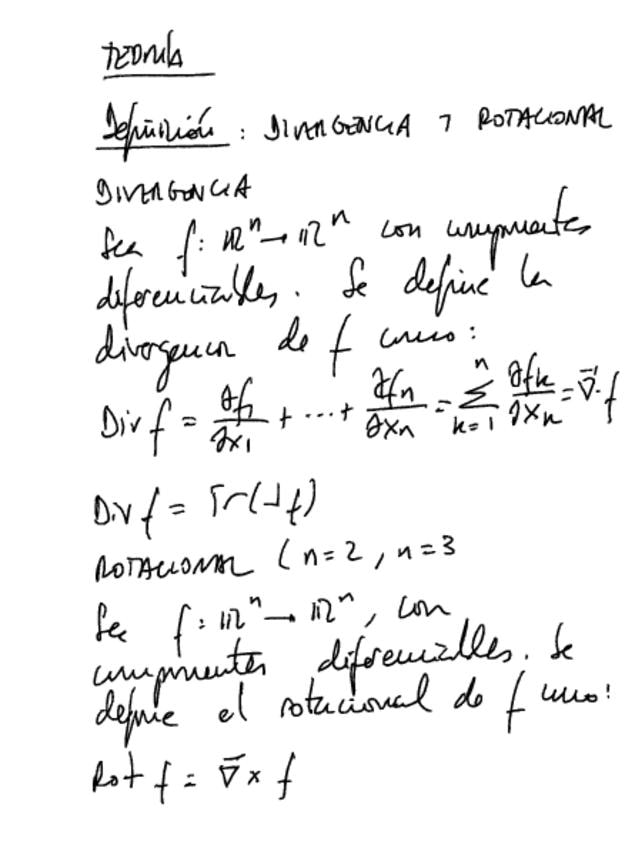 TEORÍA
Definición: DIVERGENCIA Y ROTACIONAL
DIVERGENCIA
Sea f: ℝⁿ → ℝⁿ con componentes
diferenciables. Se define la
divergencia de f como:
Div f = ∂f₁/∂x₁ + ... + ∂fₙ/∂xₙ = ∑ₖ₌₁ⁿ ∂fₖ/∂xₖ = ∇⃗·f
Div f = Tr(Jf)
ROTACIONAL (n=2, n=3
Sea f: ℝⁿ → ℝⁿ, con
componentes diferenciables. Se
define el rotacional de f como:
Rot f = ∇⃗ × f